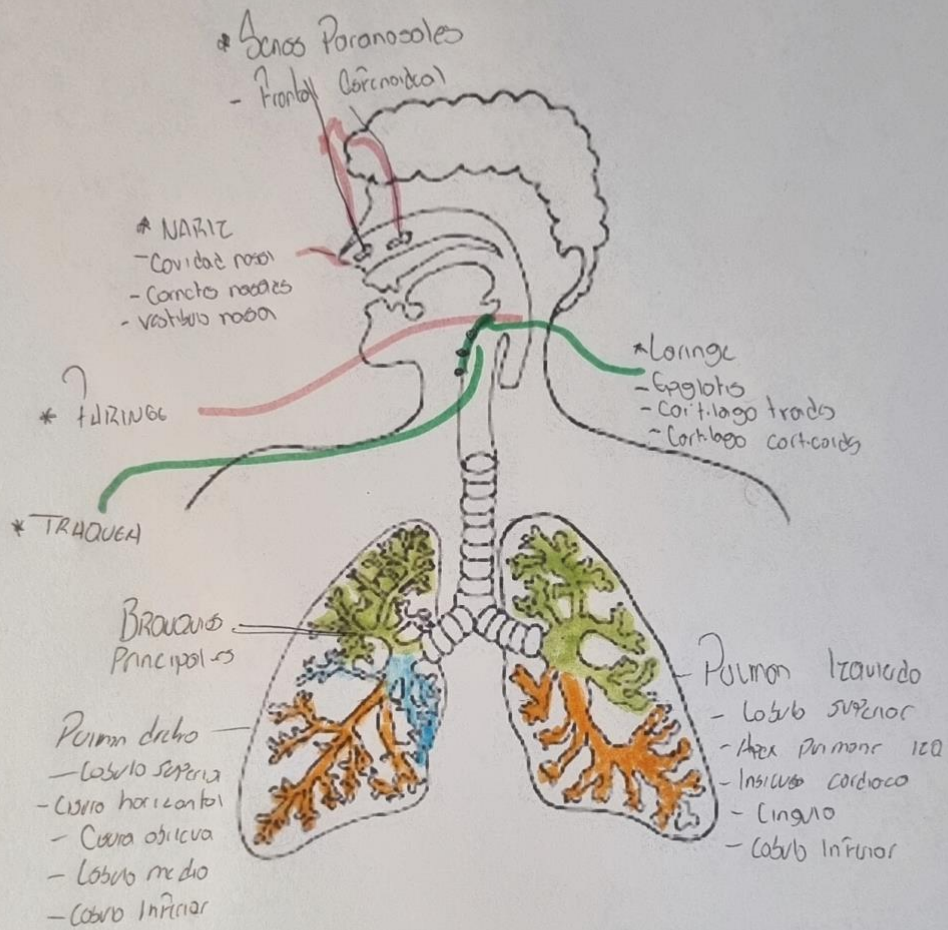 * Senos Paranosales
- Frontal Esfenoidal
* NARIZ
- Cavidad nasal
- Cornetes nasales
- vestibulo nasal
* FARINGE
* Laringe
- Epiglotis
- Cartilago
- Cartilago corticoids
* TRAQUEA
BRONQUIOS
Principales
Pulmon drcho
- Lobulo superior
- Cisura horizontal
- Cisura oblicua
- Lobulo medio
- Lobulo Inferior
Pulmon Izquierdo
- Lobulo superior
- Apex pulmonar IZQ
- Insicura cardiaca
- Lingula
- Lobulo Inferior